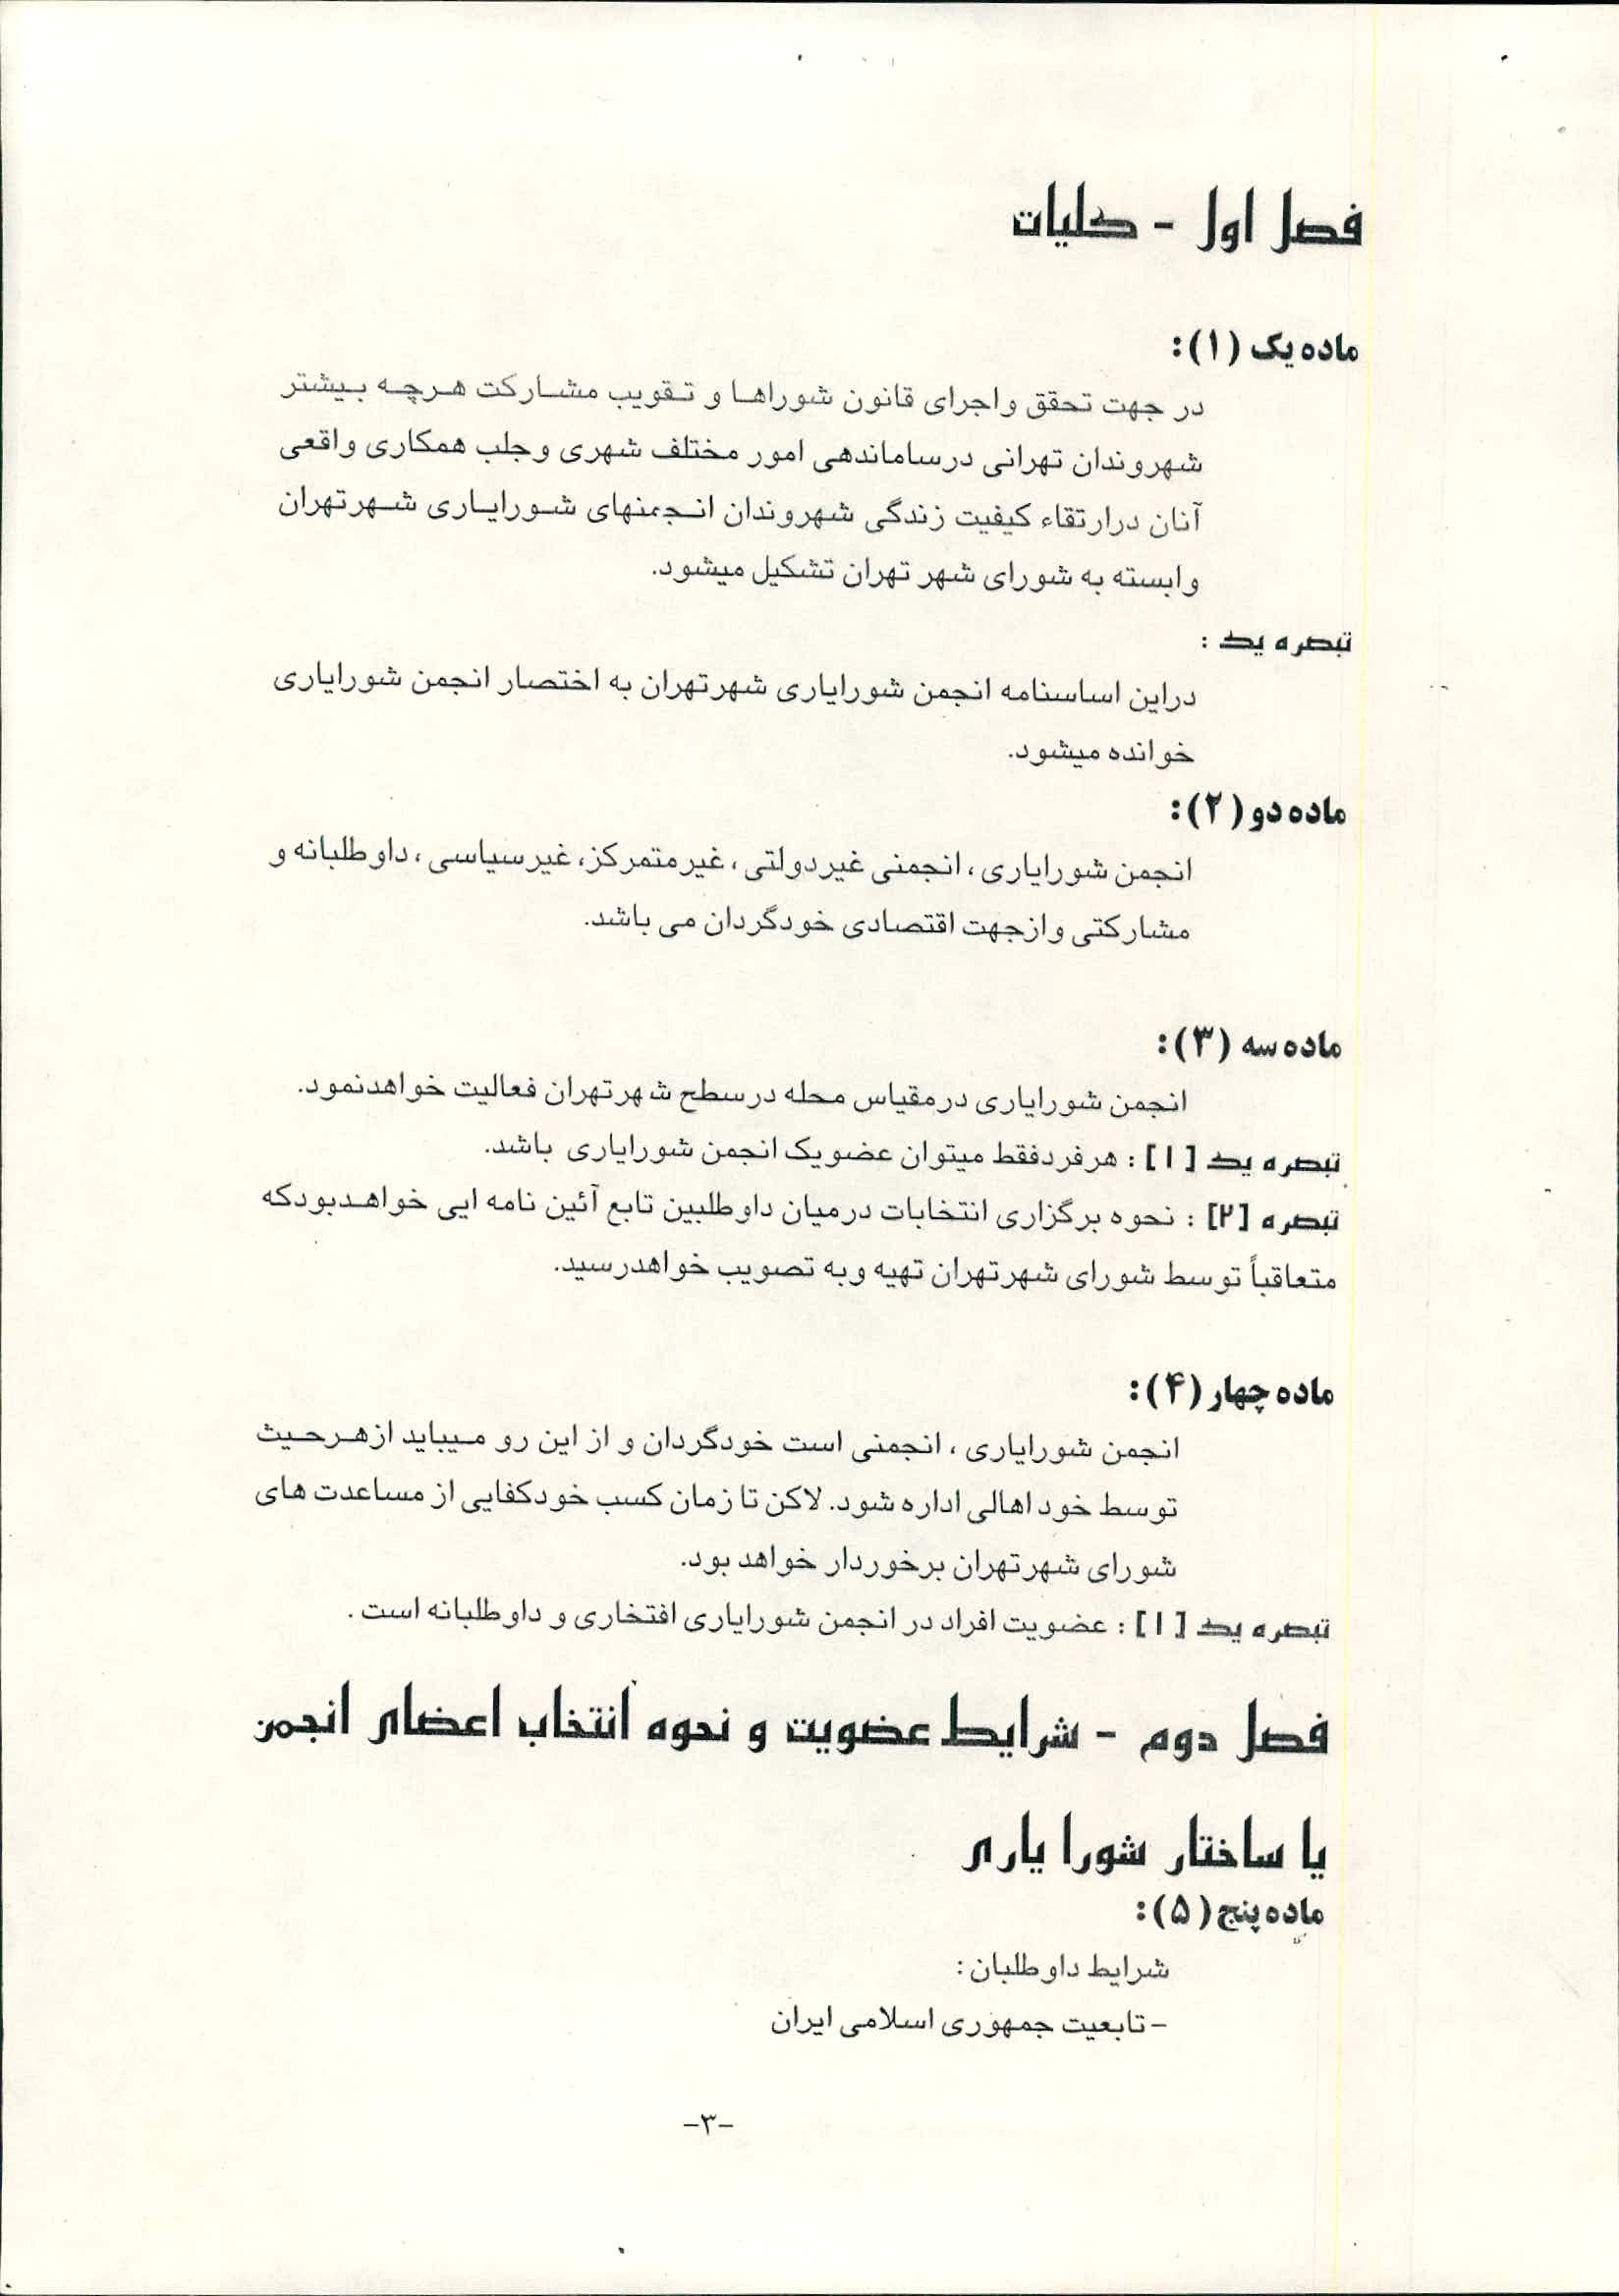 فصل اول - کلیات
ماده یک (۱):
در جهت تحقق و اجرای قانون شوراها و تقویب مشارکت هرچه بیشتر
شهروندان تهرانی درساماندهی امور مختلف شهری و جلب همکاری واقعی
آنان درارتقاء کیفیت زندگی شهروندان انجمنهای شورایاری شهرتهران
وابسته به شورای شهر تهران تشکیل میشود.
تبصره یک :
دراین اساسنامه انجمن شورایاری شهرتهران به اختصار انجمن شورایاری
خوانده میشود.
ماده دو (۲):
انجمن شورایاری ، انجمنی غیردولتی ، غیرمتمرکز، غیرسیاسی ، داوطلبانه و
مشارکتی و ازجهت اقتصادی خودگردان می باشد.
ماده سه (۳):
انجمن شورایاری درمقیاس محله درسطح شهرتهران فعالیت خواهدنمود.
تبصره یک [۱] : هرفردفقط میتوان عضویک انجمن شورایاری باشد.
تبصره [۲] : نحوه برگزاری انتخابات درمیان داوطلبین تابع آئین نامه ایی خواهدبودکه
متعاقباً توسط شورای شهرتهران تهیه وبه تصویب خواهدرسید.
ماده چهار (۴):
انجمن شورایاری ، انجمنی است خودگردان و از این رو میباید ازهرحیث
توسط خود اهالی اداره شود. لاکن تا زمان کسب خودکفایی از مساعدت های
شورای شهرتهران برخوردار خواهد بود.
تبصره یک [۱] : عضویت افراد در انجمن شورایاری افتخاری و داوطلبانه است .
فصل دوم - شرایط عضویت و نحوه انتخاب اعضای انجمن
یا ساختار شورا یاری
ماده پنج (۵):
شرایط داوطلبان :
- تابعیت جمهوری اسلامی ایران
-۳-